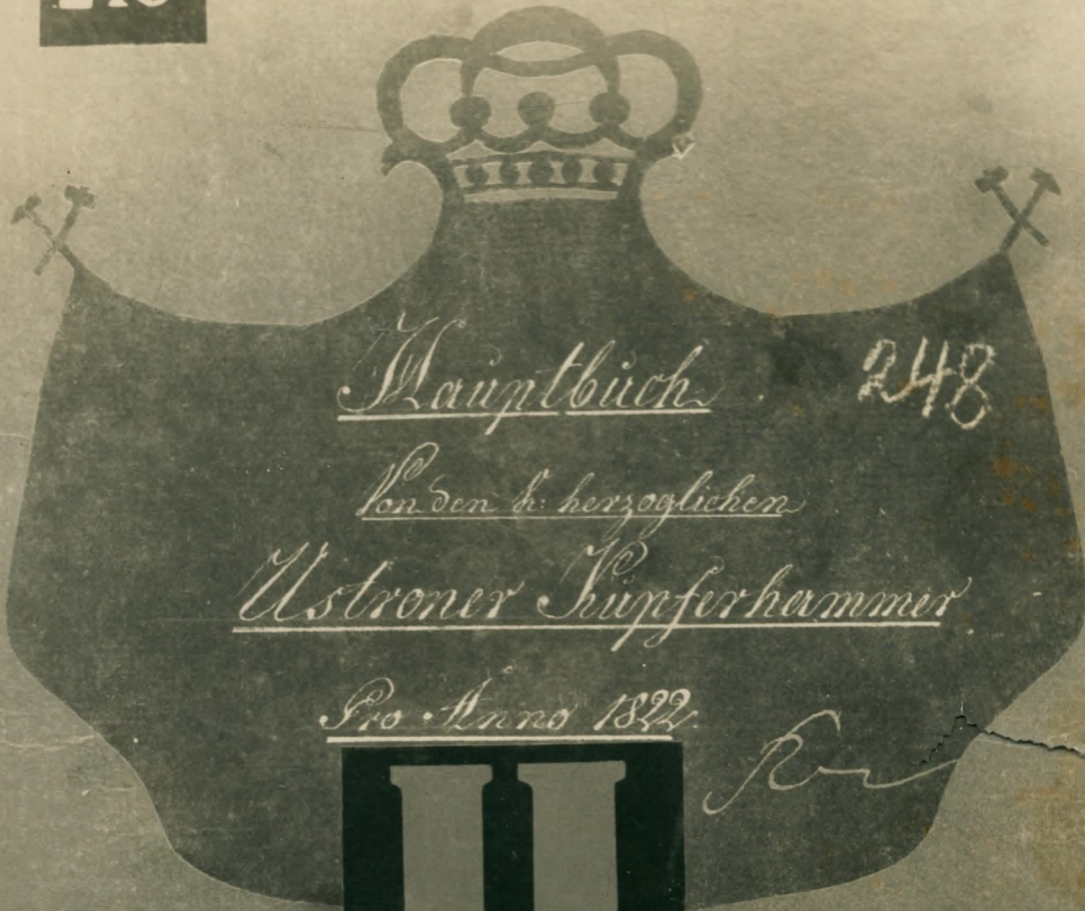 Hauptbuch
248
Von den k: herzoglichen
Ustroner Kupferhammer
Pro Anno 1822.
II